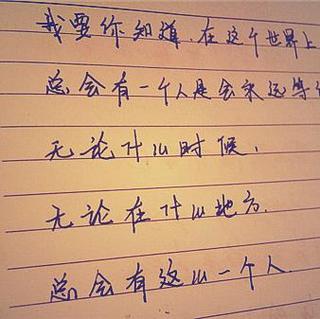 我要你知道.在这个世界上
总会有一个人是会永远等
无论什么时候,
无论在什么地方.
总会有这么一个人.